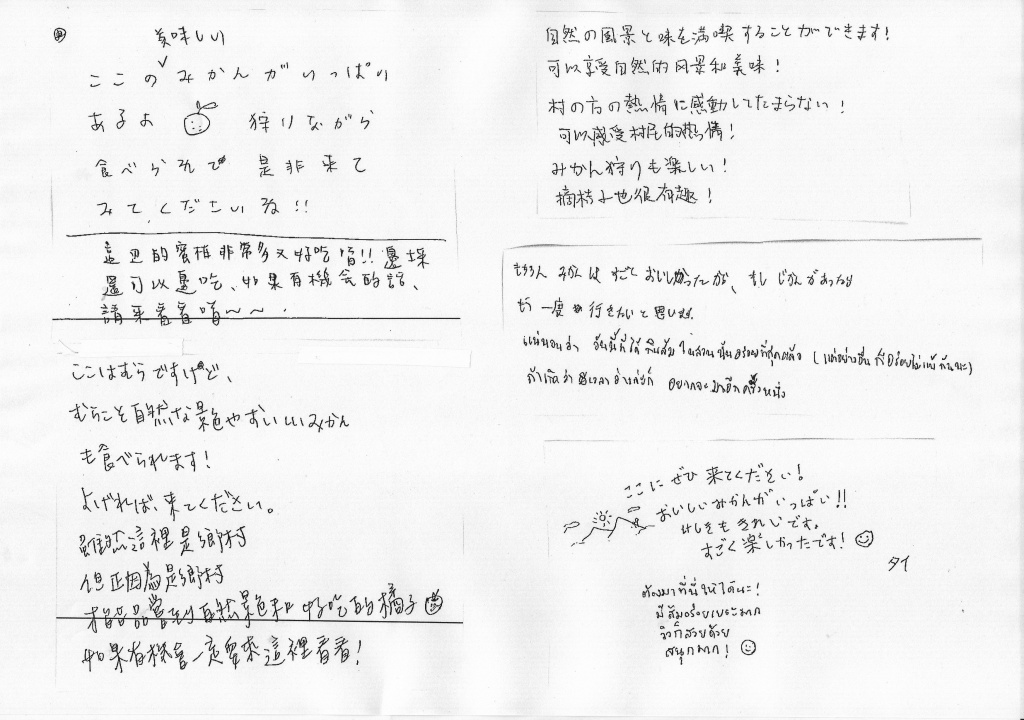 美味しい
ここのみかんがいっぱい
あるよ 狩りながら
食べられて 是非来て
みてくださいね!!
這边的蜜柑非常多又好吃唷!! 邊採
還可以邊吃、如果有機会的話、
請來看看唷~~.
ここはむらですけど、
むらこと自然な景色やおいいみかん
も食べられます!
よければ、来てください。
雖然這裡是鄉村
但正因為是鄉村
才能品嘗到自然景色和好吃的橘子
如果有機會一定要來這裡看看!
自然の風景と味を満喫することができます!
可以享受自然的风景和美味!
村の方の熱情に感動してたまらない!
可以感受村民的热情!
みかん狩りも楽しい!
摘桔子也很有趣!
もちろん みかんは すごく おいしかったが、もし じかんがあったら
もう一度 行きたいと思います。
แน่นอนว่า วันนี้ที่ได้ กินส้ม ในสวนนั้นอร่อยที่สุดแล้ว (แต่อย่างอื่น ก็อร่อยไม่แพ้กันนะ)
ถ้าเกิดว่า มีเวลา ล่ะก็ อยากจะมาอีกครั้งหนึ่ง
ここに ぜひ 来てください!
おいしいみかんがいっぱい!!
けしきもきれいです。
すごく楽しかったです!
タイ
ต้องมาที่นี่ให้ได้นะ!
มีส้มอร่อยเยอะมาก
วิวก็สวยด้วย
สนุกมาก!